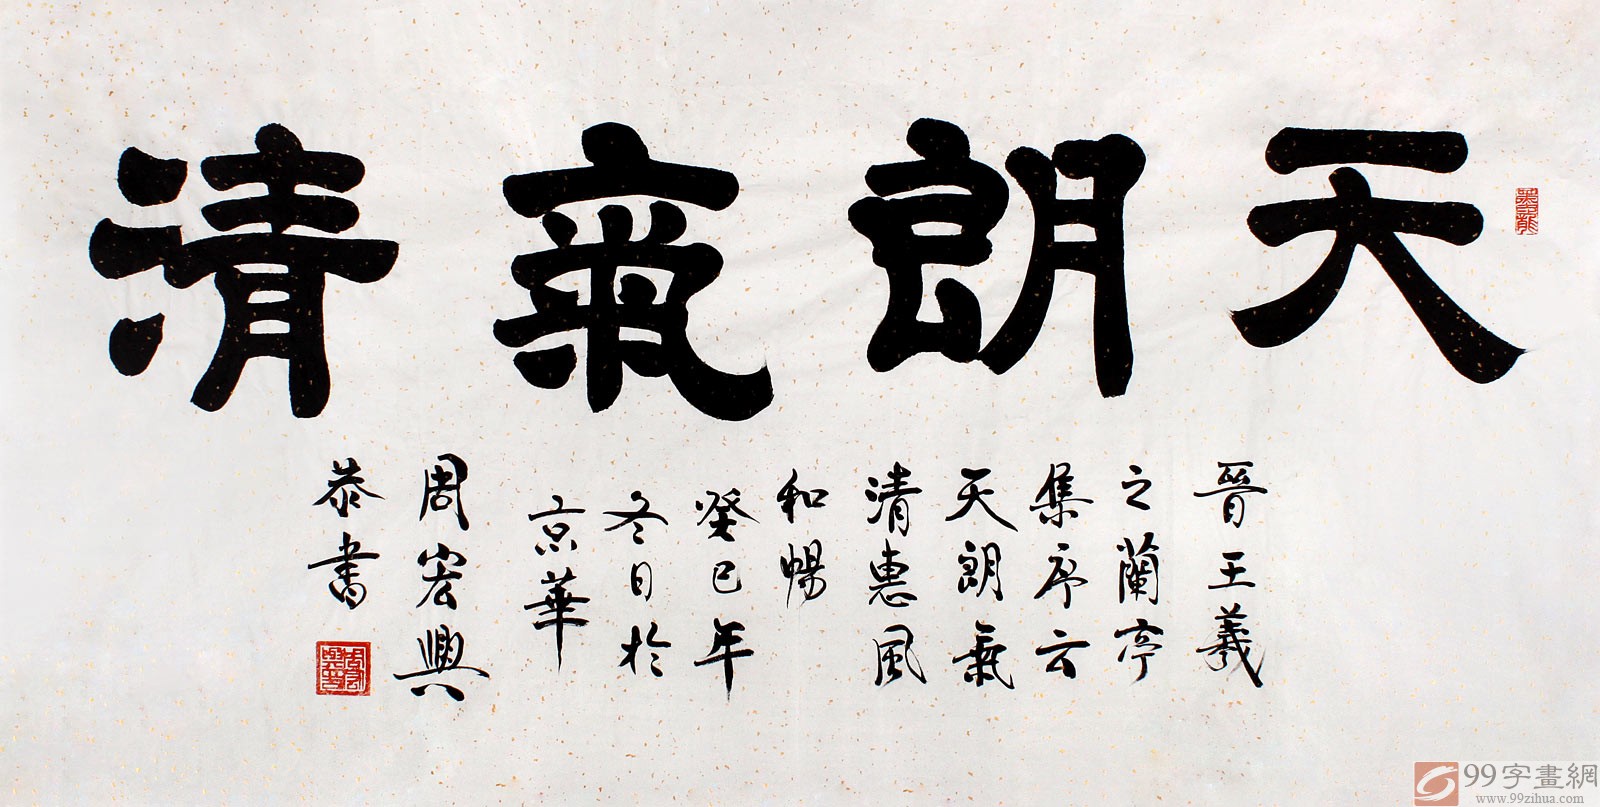 天朗氣清
晉王羲
之蘭亭
集序云
天朗氣
清惠風
和暢
癸巳年
冬日於
京華
周宏興
恭書
99字畫網
www.99zihua.com